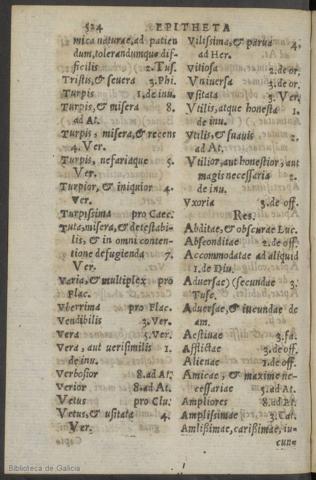 524 EPITHETA
mica naturæ, ad patien
dum, tolerandumque dif-
ficilis 2. Tus.
Tristis, & seuera 2. Phi.
Turpis 1. de inu.
Turpis, & misera 8.
ad At.
Turpis, misera, & recens
4. Ver.
Turpis, nefariaque 5.
Ver.
Turpior, & iniquior 4.
Ver.
Turpissima pro Caec.
Tuta, misera, & detestabi-
lis, & in omni conten-
tione defugienda 7.
Ver.
Varia, & multiplex pro
Flac.
Vberrima pro Flac.
Vendibilis 3. Ver.
Vera 5. Ver.
Vera, aut verisimilis 1.
de inu.
Verbosior 8. ad At.
Verior 8. ad At.
Vetus pro Clu.
Vetus, & usitata 4.
Ver.
Vilissima, & parua 4.
ad Her.
Vitiosa 2. de or.
Vniuersa 3. de or.
Vsitata 3. Ver.
Vtilis, atque honesta 1.
de inu.
Vtilis, & suauis 2.
ad At.
Vtilior, aut honestior, aut
magis necessaria 2.
de inu.
Vxoria 3. de off.
Res.
Abditæ, & obscuræ Luc.
Absconditæ 2. de off.
Accommodatæ ad aliquid
1. de Diu.
Aduersæ) (secundæ 3.
Tusc.
Aduersæ, & iucundæ de
am.
Aestiuæ 3. fa.
Afflictæ 3. de off.
Alienæ 1. de off.
Amicæ, & maxime ne-
cessariæ 5. ad At.
Ampliores 8. ad Pt.
Amplissimæ 3. Cat.
Amlissimæ, carissimæ, iu-
cun-
Biblioteca de Galicia